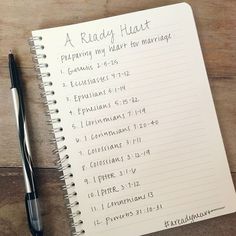 A Ready Heart
preparing my heart for marriage
1. Genesis 2:5-25
2. Ecclesiastes 4:7-12
3. Ephesians 5:1-14
4. Ephesians 5:15-22
5. 1 Corinthians 7:1-19
6. 1 Corinthians 7:20-40
7. Colossians 3:1-11
8. Colossians 3:12-19
9. 1 Peter 3:1-6
10. 1 Peter 3:7-12
11. 1 Corinthians 13
12. Proverbs 31:10-31
#areadyheart